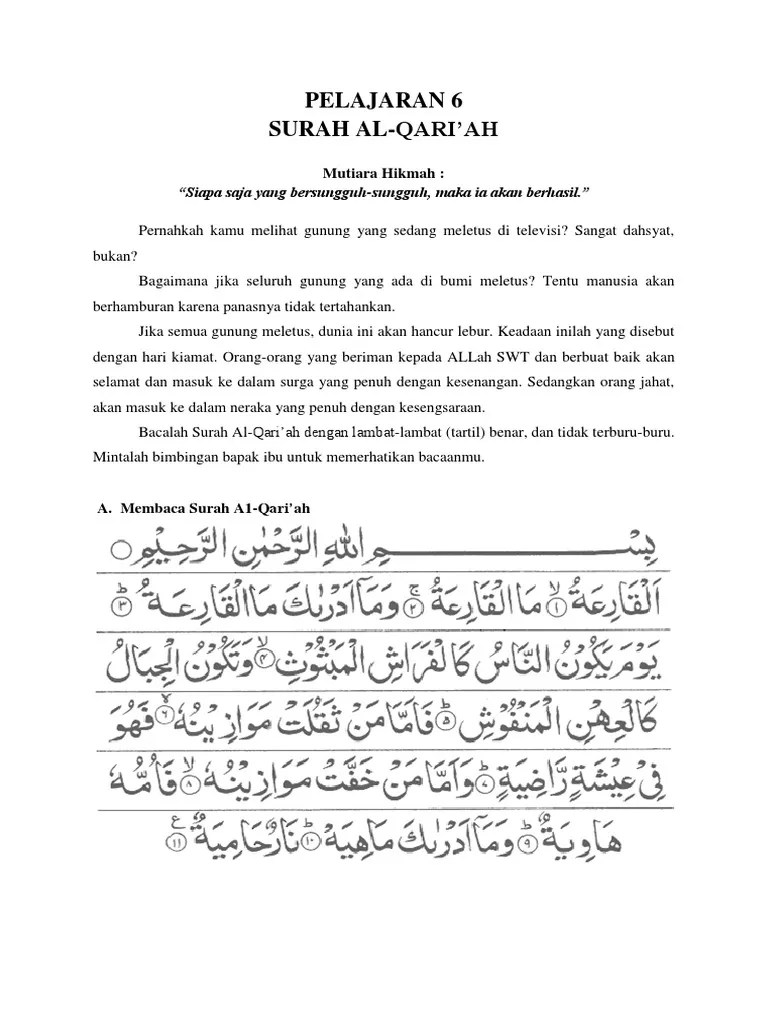 PELAJARAN 6
SURAH AL-QARI’AH
Mutiara Hikmah :
“Siapa saja yang bersungguh-sungguh, maka ia akan berhasil.”
Pernahkah kamu melihat gunung yang sedang meletus di televisi? Sangat dahsyat,
bukan?
Bagaimana jika seluruh gunung yang ada di bumi meletus? Tentu manusia akan
berhamburan karena panasnya tidak tertahankan.
Jika semua gunung meletus, dunia ini akan hancur lebur. Keadaan inilah yang disebut
dengan hari kiamat. Orang-orang yang beriman kepada ALLah SWT dan berbuat baik akan
selamat dan masuk ke dalam surga yang penuh dengan kesenangan. Sedangkan orang jahat,
akan masuk ke dalam neraka yang penuh dengan kesengsaraan.
Bacalah Surah Al-Qari’ah dengan lambat-lambat (tartil) benar, dan tidak terburu-buru.
Mintalah bimbingan bapak ibu untuk memerhatikan bacaanmu.
A. Membaca Surah A1-Qari’ah
بِسْمِ اللهِ الرَّحْمٰنِ الرَّحِيْمِ ○
اَلْقَارِعَةُۙ ١ مَا الْقَارِعَةُۚ ٢ وَمَآ اَدْرٰىكَ مَا الْقَارِعَةُۗ ٣
يَوْمَ يَكُوْنُ النَّاسُ كَالْفَرَاشِ الْمَبْثُوْثِۙ ٤ وَتَكُوْنُ الْجِبَالُ
كَالْعِهْنِ الْمَنْفُوْشِۗ ٥ فَاَمَّا مَنْ ثَقُلَتْ مَوَازِيْنُهٗۙ ٦ فَهُوَ
فِيْ عِيْشَةٍ رَّاضِيَةٍۗ ٧ وَاَمَّا مَنْ خَفَّتْ مَوَازِيْنُهٗۙ ٨ فَاُمُّهٗ
هَاوِيَةٌۗ ٩ وَمَآ اَدْرٰىكَ مَاهِيَهْۗ ١٠ نَارٌ حَامِيَةٌ ١١ ع